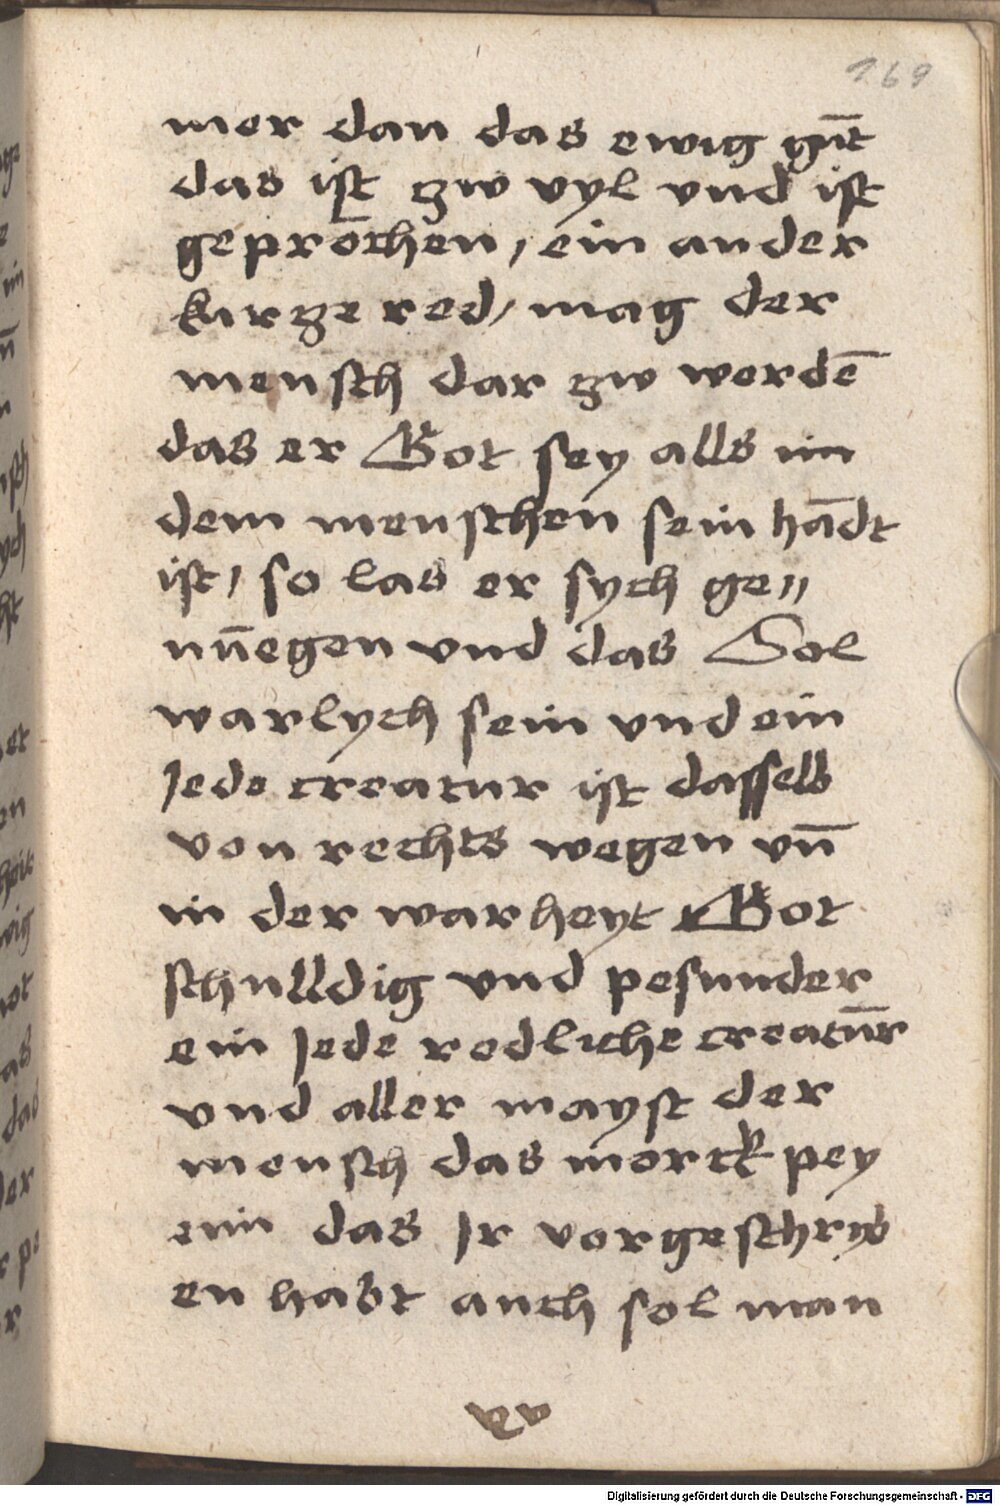 169
mer dan das ewig gut̄
das ist zw vyl vnd ist
geprochen / ein ander
kurze red / mag der
mensch dar zw werdē
das er Got sey alls im
dem menschen sein hādt
ist / so las er sych ge〃
nūegen vnd das Sol
warlych sein vnd ein
Jede creatur ist dasselb
von rechts wegen vn̄
in der warheyt Got
schulldig vnd pesunder
ein Jede redliche creatūr
vnd aller mayst der
mensch das morck pey
eim das Ir vorgeschryb
en habt auch sol man
Digitalisierung gefördert durch die Deutsche Forschungsgemeinschaft - DFG